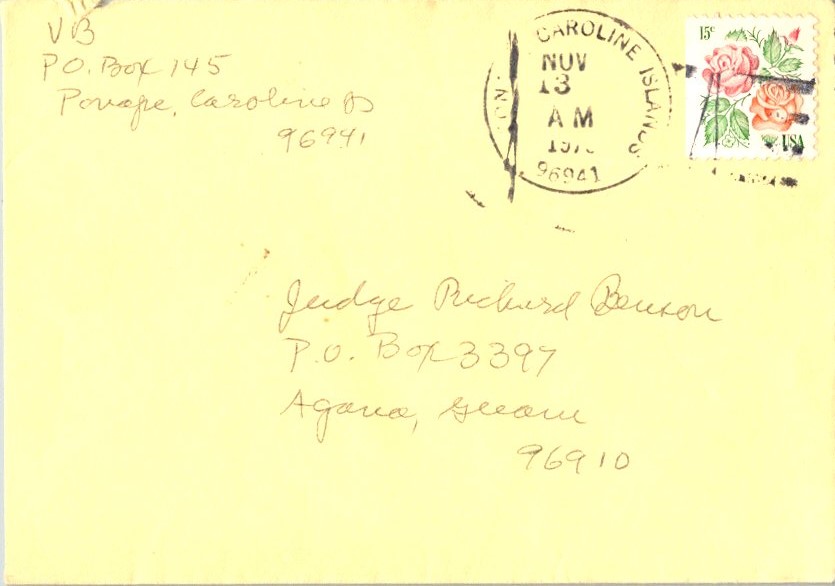 VB
P.O. Box 145
Ponape, Caroline Is
96941
CAROLINE ISLANDS
NOV
13
AM
96941
15c
USA
Judge Richard Benson
P.O. Box 3397
Agana, Guam
96910